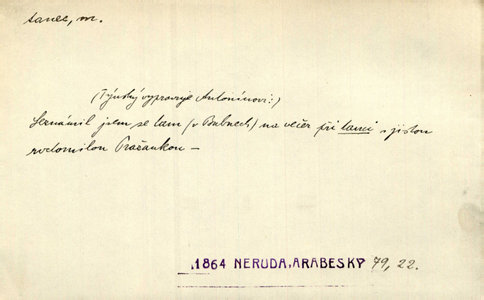 tanec, m.
(Týnský vypravuje Antonínovi:)
Seznámil jsem se tam (v Bubnech) na večer při tanci s jistou
rodomilou Pražankou —
1864 NERUDA, ARABESKY 79, 22.